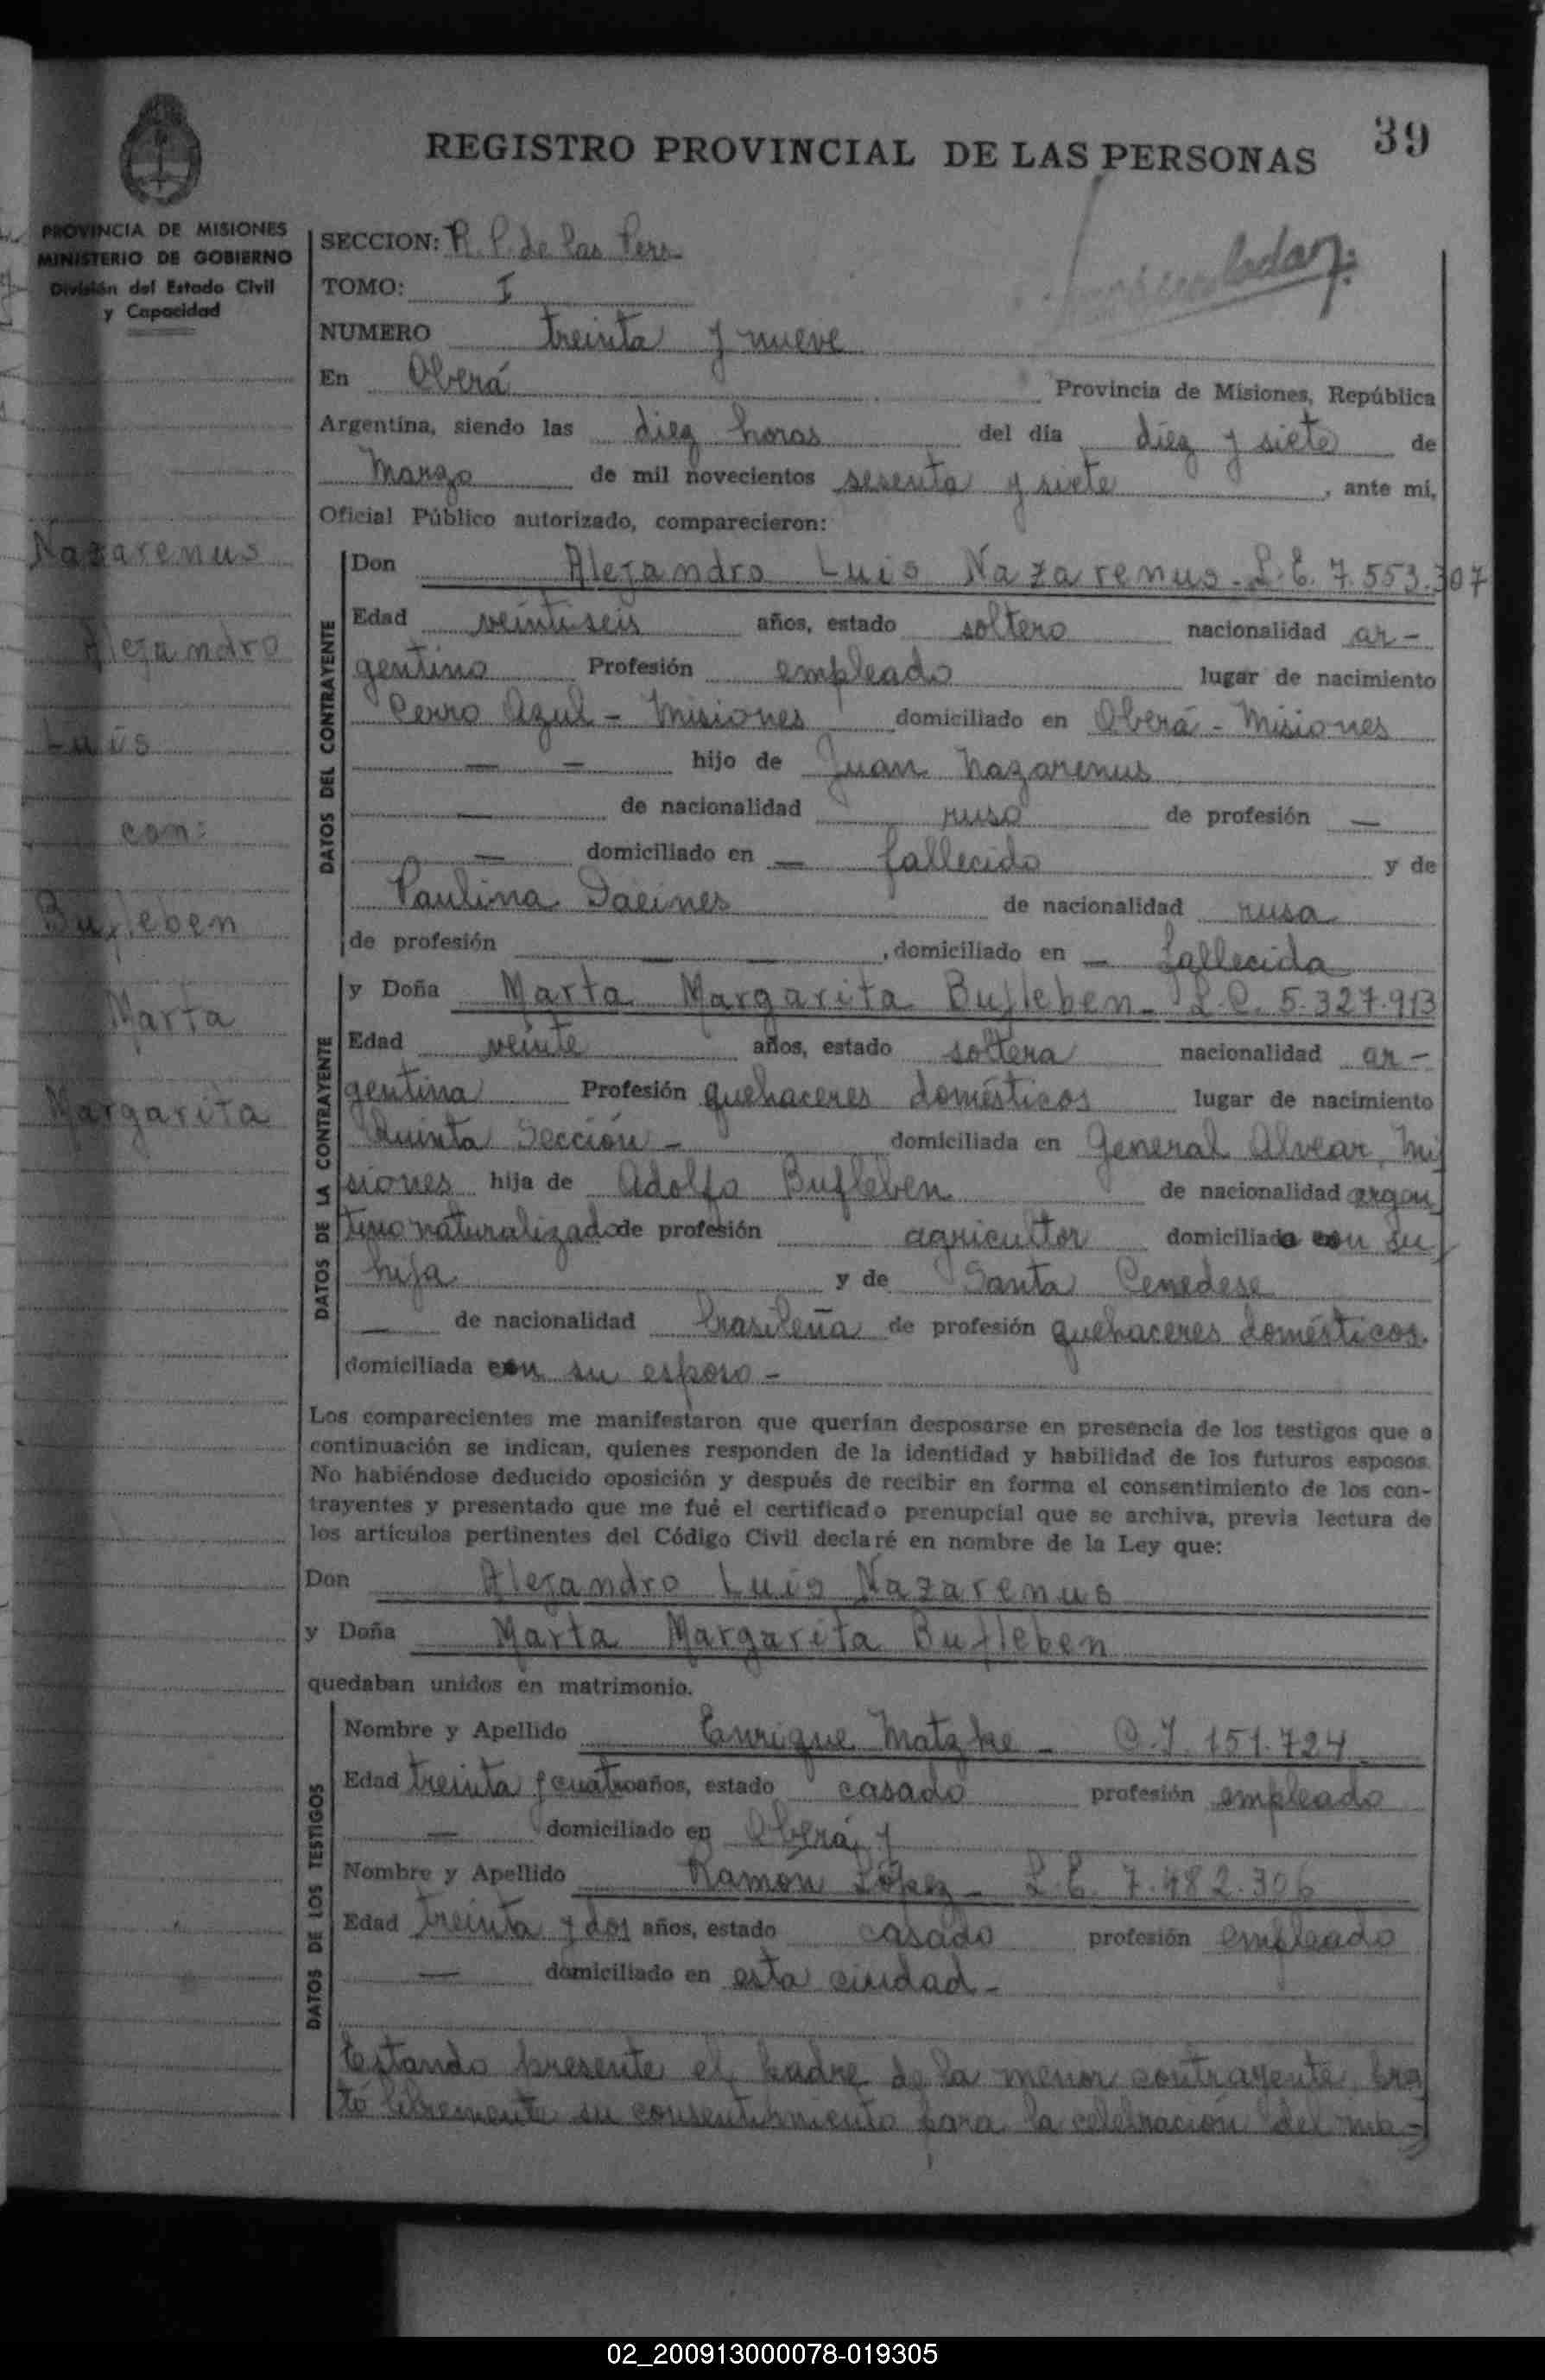 39
REGISTRO PROVINCIAL DE LAS PERSONAS
PROVINCIA DE MISIONES
MINISTERIO DE GOBIERNO
División del Estado Civil
y Capacidad
Nazarenus
Alejandro
Luis
con:
Bufleben
Marta
Margarita
SECCION: R. P. de las Pers
TOMO: I
NUMERO treinta y nueve
En Oberá Provincia de Misiones, República
Argentina, siendo las diez horas del día diez y siete de
Marzo de mil novecientos sesenta y siete, ante mí,
Oficial Público autorizado, comparecieron:
DATOS DEL CONTRAYENTE
Don Alejandro Luis Nazarenus - L.E. 7.553.307
Edad veintiseis años, estado soltero nacionalidad ar-
gentino Profesión empleado lugar de nacimiento
Cerro Azul - Misiones domiciliado en Oberá - Misiones
— — hijo de Juan Nazarenus
— de nacionalidad ruso de profesión —
— domiciliado en — fallecido y de
Paulina de nacionalidad rusa
de profesión — —, domiciliado en — fallecida
DATOS DE LA CONTRAYENTE
y Doña Marta Margarita Bufleben - L.C. 5.327.913
Edad veinte años, estado soltera nacionalidad ar-
gentina Profesión quehaceres domésticos lugar de nacimiento
Quinta Sección - domiciliada en General Alvear, Mi
siones hija de Adolfo Bufleben de nacionalidad argen
tino naturalizado de profesión agricultor domiciliado con su
hija y de Santa Cenedese
— de nacionalidad brasileña de profesión quehaceres domésticos.
domiciliada con su esposo -
Los comparecientes me manifestaron que querían desposarse en presencia de los testigos que a
continuación se indican, quienes responden de la identidad y habilidad de los futuros esposos.
No habiéndose deducido oposición y después de recibir en forma el consentimiento de los con-
trayentes y presentado que me fué el certificado prenupcial que se archiva, previa lectura de
los artículos pertinentes del Código Civil declaré en nombre de la Ley que:
Don Alejandro Luis Nazarenus
y Doña Marta Margarita Bufleben
quedaban unidos en matrimonio.
DATOS DE LOS TESTIGOS
Nombre y Apellido Enrique Matzke - C.I. 151.724
Edad treinta y cuatro años, estado casado profesión empleado
— domiciliado en Oberá y
Nombre y Apellido Ramon López - L.E. 7.482.306
Edad treinta y dos años, estado casado profesión empleado
— domiciliado en esta ciudad -
Estando presente el padre de la menor contrayente, pres
tó libremente su consentimiento para la celebración del ma-
02_200913000078-019305